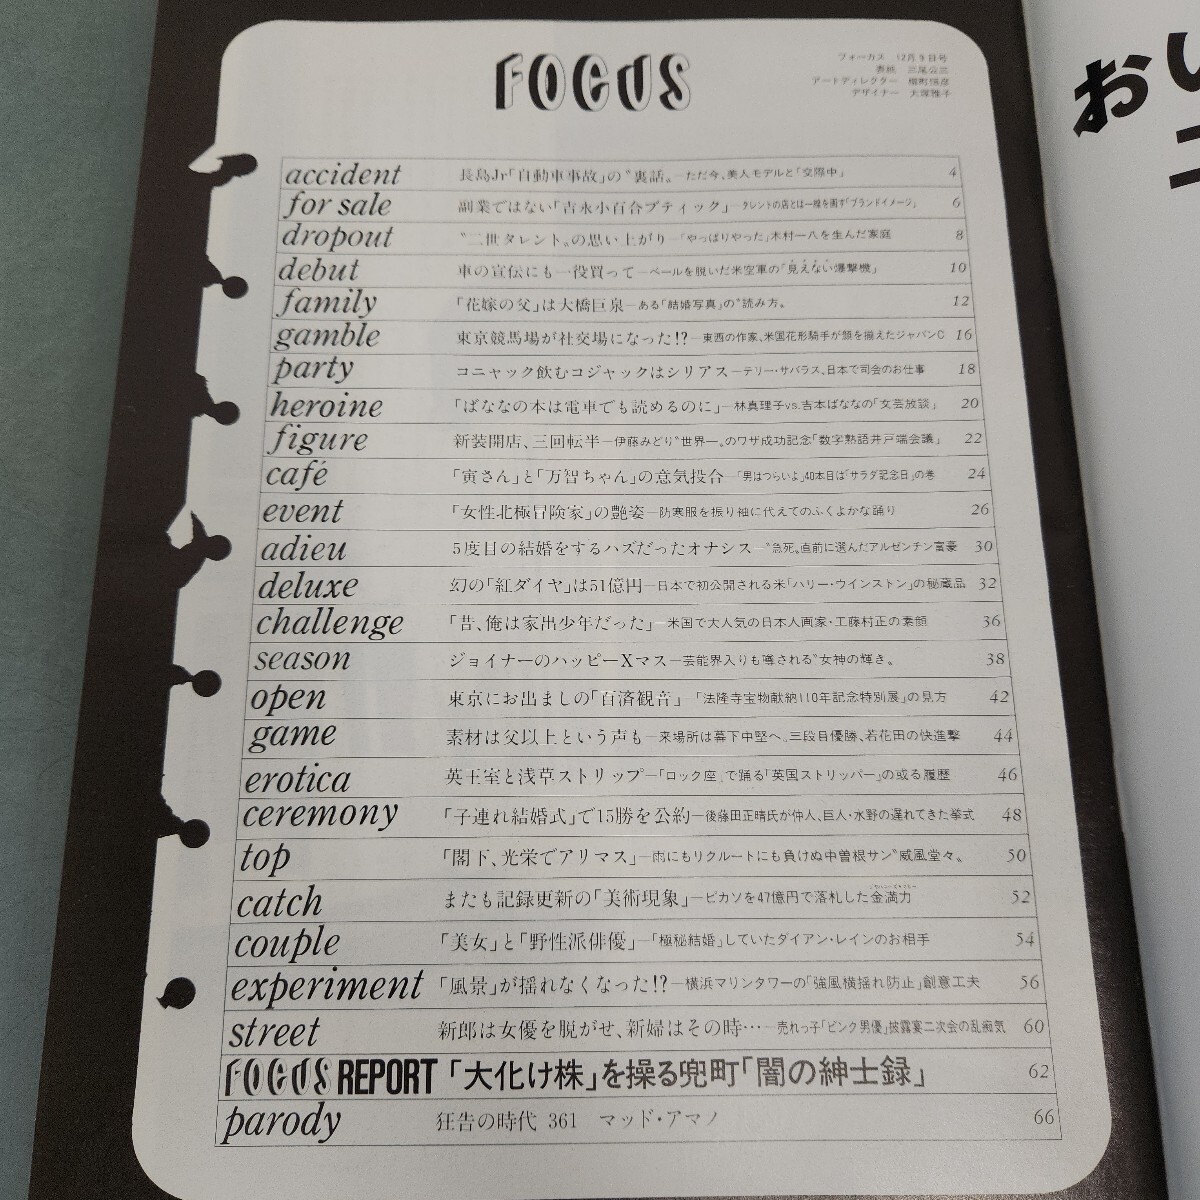 FOCUS
フォーカス 12月9日号
表紙 三尾公三
アートディレクター
デザイナー 大塚雅子
accident 長島Jr「自動車事故」の〝裏話〟―ただ今、美人モデルと「交際中」 4
for sale 副業ではない「吉永小百合ブティック」―タレントの店とは一線を画す「ブランドイメージ」 6
dropout 〝二世タレント〟の思い上がり―「やっぱりやった」木村一八を生んだ家庭 8
debut 車の宣伝にも一役買って―ベールを脱いだ米空軍の「見えない爆撃機」 10
family 「花嫁の父」は大橋巨泉―ある「結婚写真」の〝読み方〟 12
gamble 東京競馬場が社交場になった!?―東西の作家、米国花形騎手が顔を揃えたジャパンC 16
party コニャック飲むコジャックはシリアス―テリー・サバラス、日本で司会のお仕事 18
heroine 「ばななの本は電車でも読めるのに」―林真理子vs.吉本ばななの「文芸放談」 20
figure 新装開店、三回転半―伊藤みどり〝世界一〟のワザ成功記念「数字熟語井戸端会議」 22
café 「寅さん」と「万智ちゃん」の意気投合―「男はつらいよ」40本目は「サラダ記念日」の巻 24
event 「女性北極冒険家」の艶姿―防寒服を振り袖に代えてのふくよかな踊り 26
adieu 5度目の結婚をするハズだったオナシス―〝急死〟直前に選んだアルゼンチン富豪 30
deluxe 幻の「紅ダイヤ」は51億円―日本で初公開される米「ハリー・ウインストン」の秘蔵品 32
challenge 「昔、俺は家出少年だった」―米国で大人気の日本人画家・工藤村正の素顔 36
season ジョイナーのハッピーXマス―芸能界入りも噂される〝女神の輝き〟 38
open 東京にお出ましの「百済観音」「法隆寺宝物献納110年記念特別展」の見方 42
game 素材は父以上という声も―来場所は幕下中堅へ。三段目優勝、若花田の快進撃 44
erotica 英王室と浅草ストリップ―「ロック座」で踊る「英国ストリッパー」の或る履歴 46
ceremony 「子連れ結婚式」で15勝を公約―後藤田正晴氏が仲人、巨人・水野の遅れてきた挙式 48
top 「閣下、光栄でアリマス」―雨にもリクルートにも負けぬ中曽根サン〝威風堂々〟 50
catch またも記録更新の「美術現象」―ピカソを47億円で落札した金満力 52
couple 「美女」と「野性派俳優」―「極秘結婚」していたダイアン・レインのお相手 54
experiment 「風景」が揺れなくなった!?―横浜マリンタワーの「強風横揺れ防止」創意工夫 56
street 新郎は女優を脱がせ、新婦はその時…―売れっ子「ピンク男優」披露宴二次会の乱痴気 60
FOCUS REPORT 「大化け株」を操る兜町「闇の紳士録」 62
parody 狂告の時代 361 マッド・アマノ 66